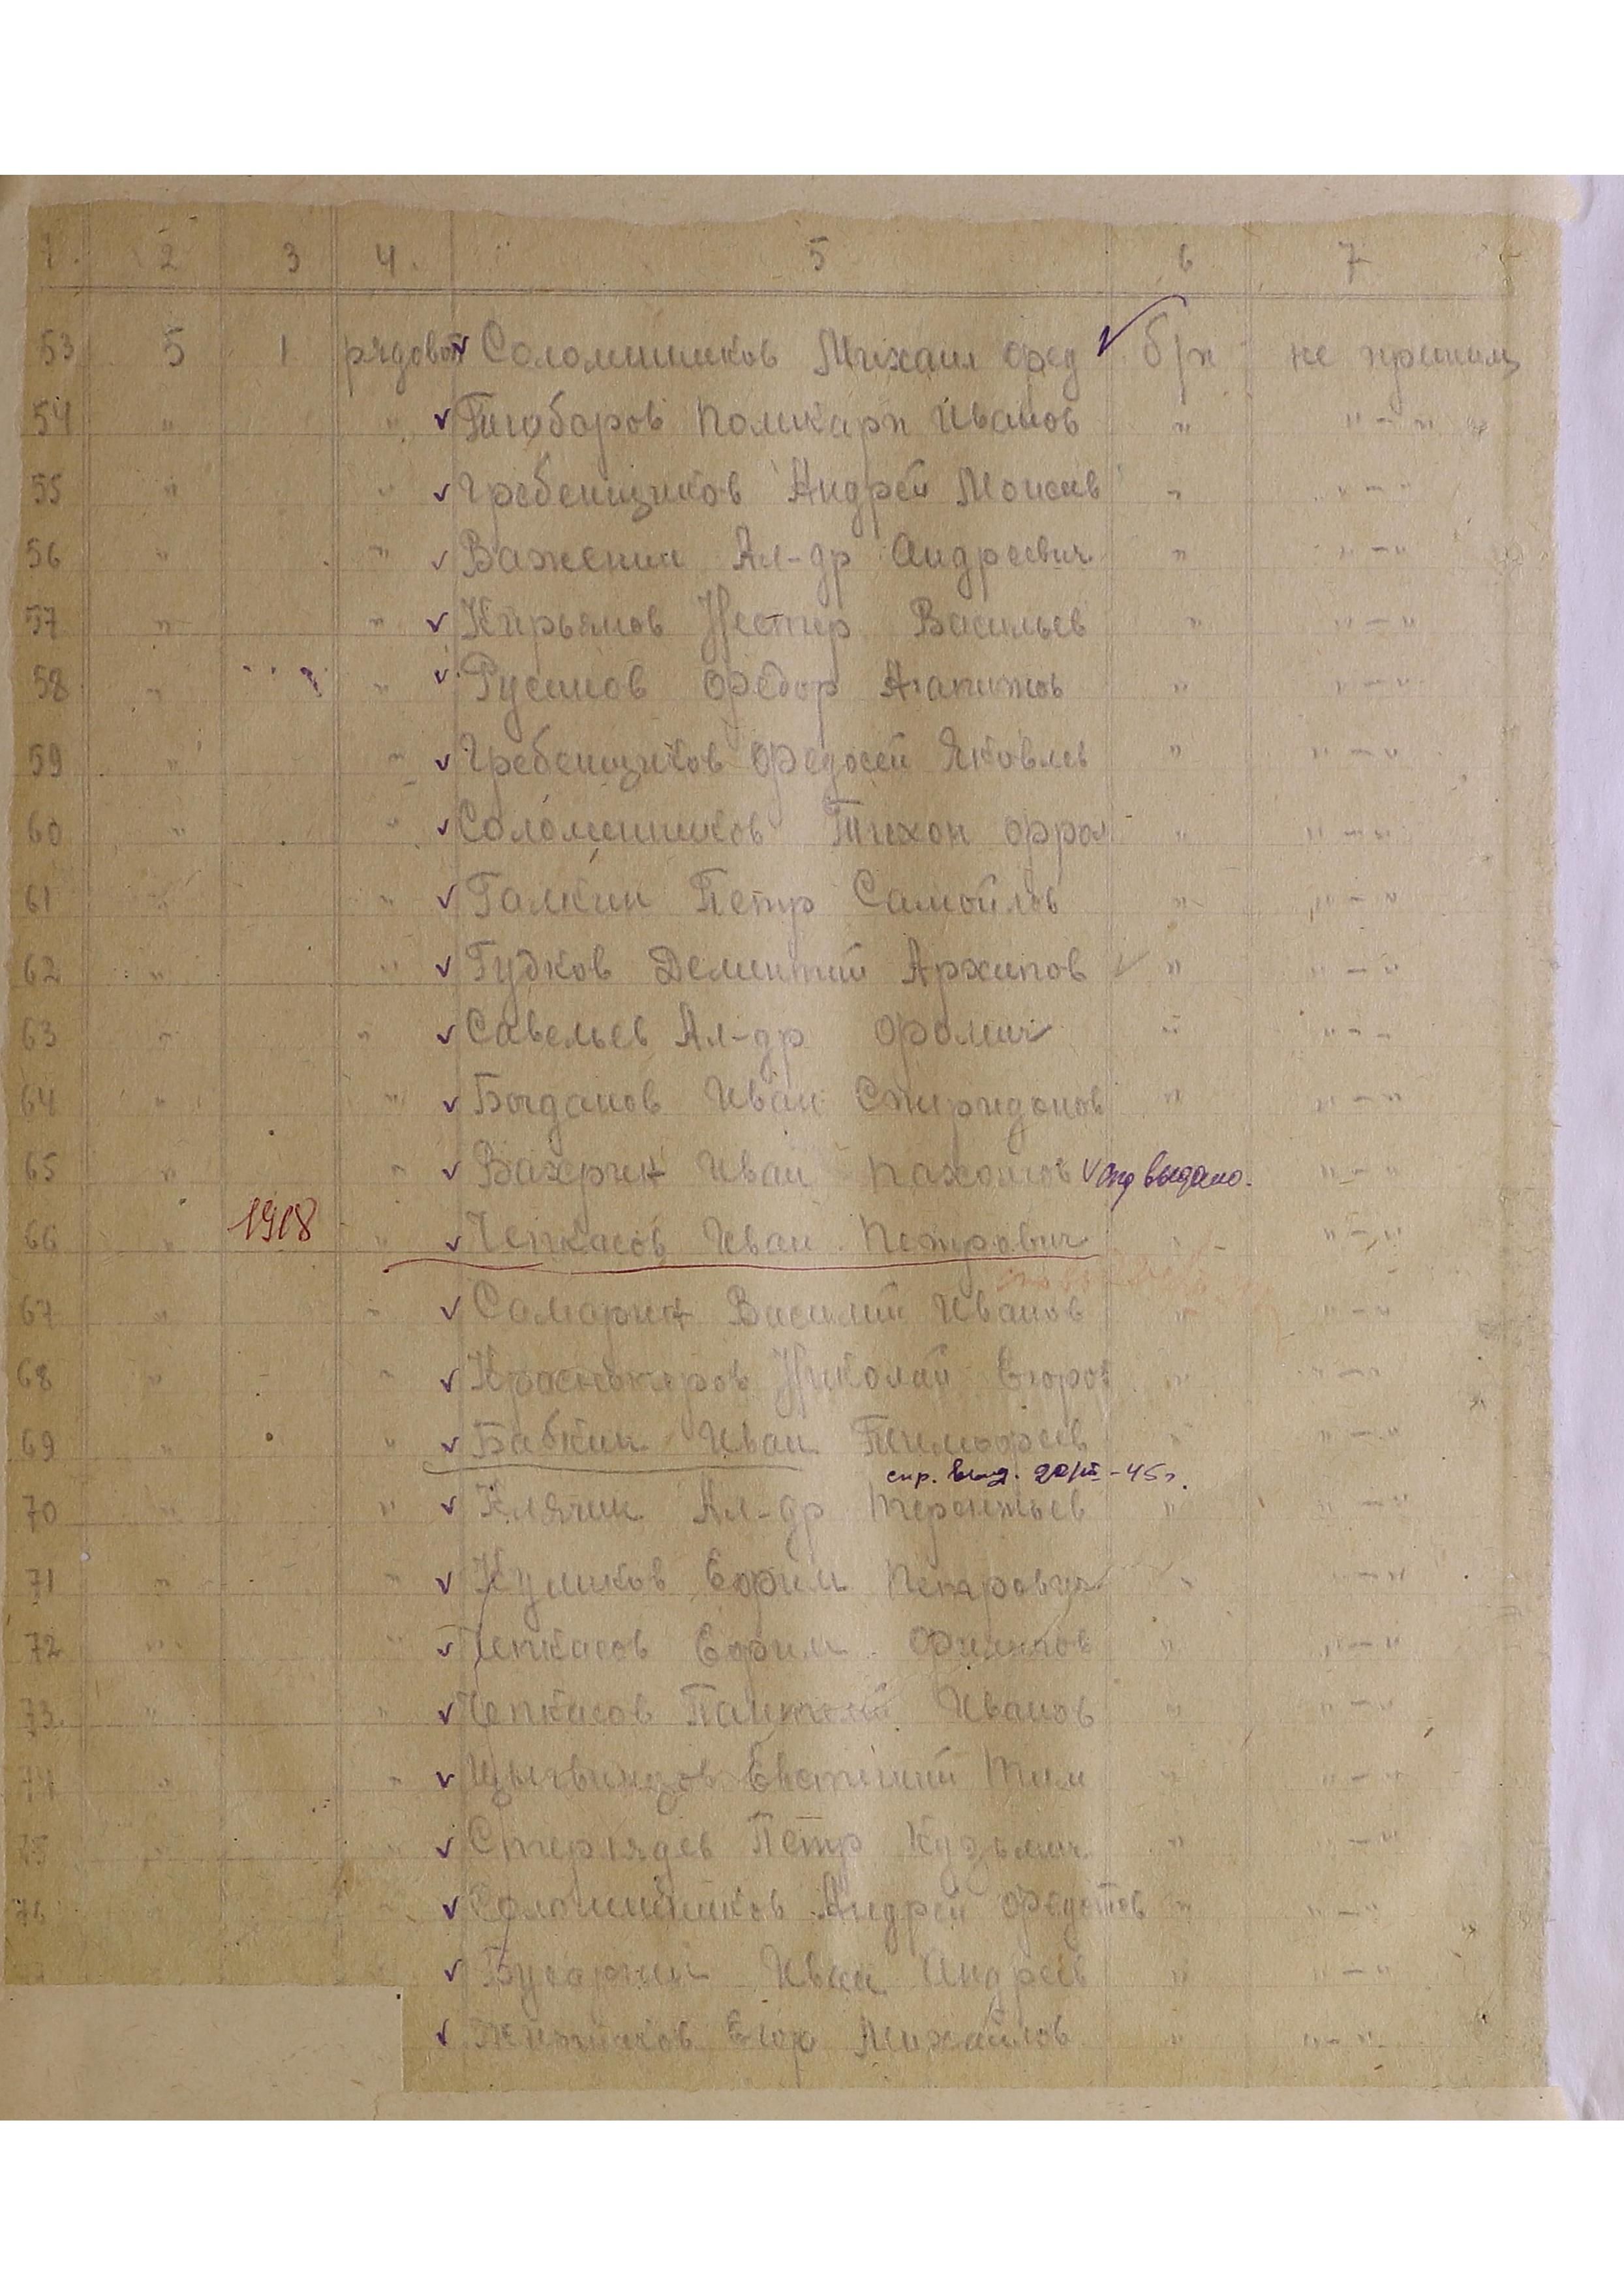 1. 2 3 4. 5 6 7
53 5 1 рядовой Соломенников Михаил Фед б/п не приним
54 " " Поликарп Иванов " "-"
55 " " Гребенщиков Андрей Моисеев " "-"
56 " " Важенин Ал-др Андреевич " "-"
57 " " Кирьянов Нестер Васильев " "-"
58 " " Русинов Федор Агапитов " "-"
59 " " Гребенщиков Федосей Яковлев " "-"
60 " " Соломенников Тихон Фрол " "-"
61 " " Галкин Петр Самойлов " "-"
62 " " Гудков Дементий Архипов " "-"
63 " " Савельев Ал-др Фролыч " "-"
64 " " Богданов Иван Спиридонов " "-"
65 " " Иван Пахомов выдано. "-"
66 " 1918 " Чепкасов Иван Петрович " "-"
67 " " Самарин Василий Иванов " "-"
68 " " Красноперов Николай Егоров " "-"
69 " " Бабкин Иван Тимофеев " "-"
спр. выд. -45г.
70 " " Клячин Ал-др Терентьев " "-"
71 " " Куликов Ефим Петрович " "-"
72 " " Чепкасов Ефим Филиппов " "-"
73 " " Чепкасов Пантелей Иванов " "-"
74 " " Евстигней Тим " "-"
75 " " Стерлядев Петр Кузьмич " "-"
76 " Соломенников Андрей Федотов " "-"
Иван Андреев " "-"
Егор Михайлов " "-"